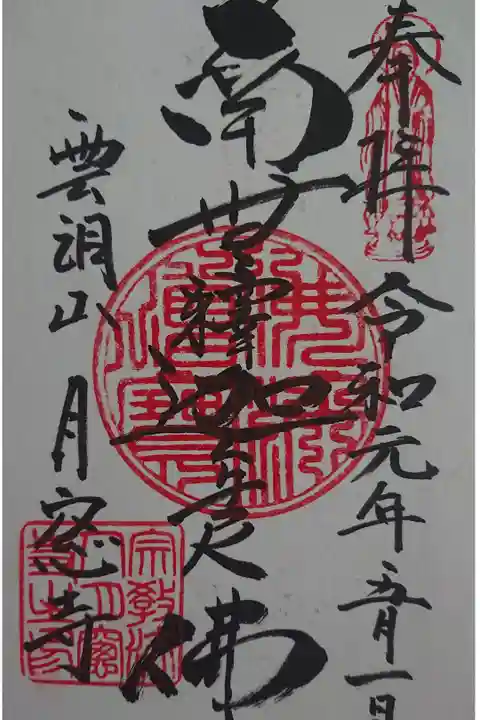 奉拝 令和元年五月一日
南無釋迦牟尼佛
雲洞山 月窓寺
宗教法